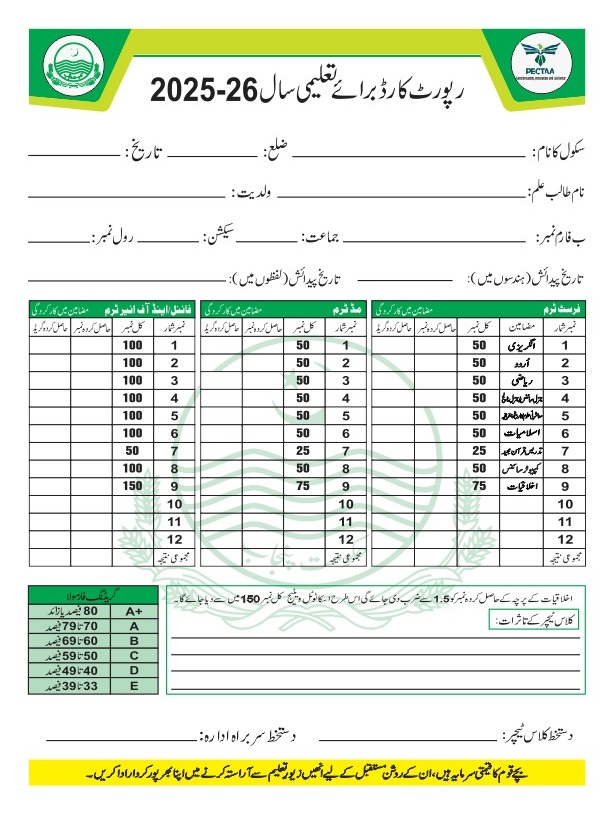 PECTAA
رپورٹ کارڈ برائے تعلیمی سال 26-2025
سکول کا نام: ضلع: تاریخ:
نام طالب علم: ولدیت:
ب فارم نمبر: جماعت: سیکشن: رول نمبر:
تاریخ پیدائش (ہندسوں میں): تاریخ پیدائش (لفظوں میں):
فرسٹ ٹرم مضامین میں کارکردگی
نمبر شمار مضامین کل نمبر حاصل کردہ نمبر حاصل کردہ گریڈ
1 انگریزی 50
2 اُردو 50
3 ریاضی 50
4 50
5 50
6 اسلامیات 50
7 تدریس قرآن مجید 25
8 کمپیوٹر سائنس 50
9 اخلاقیات 75
10
11
12
مجموعی نتیجہ
مڈ ٹرم مضامین میں کارکردگی
نمبر شمار کل نمبر حاصل کردہ نمبر حاصل کردہ گریڈ
1 50
2 50
3 50
4 50
5 50
6 50
7 25
8 50
9 75
10
11
12
مجموعی نتیجہ
فائنل/اینڈ آف ائیر ٹرم مضامین میں کارکردگی
نمبر شمار کل نمبر حاصل کردہ نمبر حاصل کردہ گریڈ
1 100
2 100
3 100
4 100
5 100
6 100
7 50
8 100
9 150
10
11
12
مجموعی نتیجہ
اخلاقیات کے پرچہ کے حاصل کردہ نمبر کو 1.5 سے ضرب دی جائے گی اس طرح اسکا ٹوٹل ویٹیج کل نمبر 150 میں سے دیا جائے گا۔
کلاس ٹیچر کے تاثرات:
گریڈنگ فارمولا
A+ 80 فیصد یا زائد
A 70 تا 79 فیصد
B 60 تا 69 فیصد
C 50 تا 59 فیصد
D 40 تا 49 فیصد
E 33 تا 39 فیصد
دستخط کلاس ٹیچر: دستخط سربراہ ادارہ:
بچے قوم کا قیمتی سرمایہ ہیں، ان کے روشن مستقبل کے لیے انھیں زیورِ تعلیم سے آراستہ کرنے میں اپنا بھرپور کردار ادا کریں۔